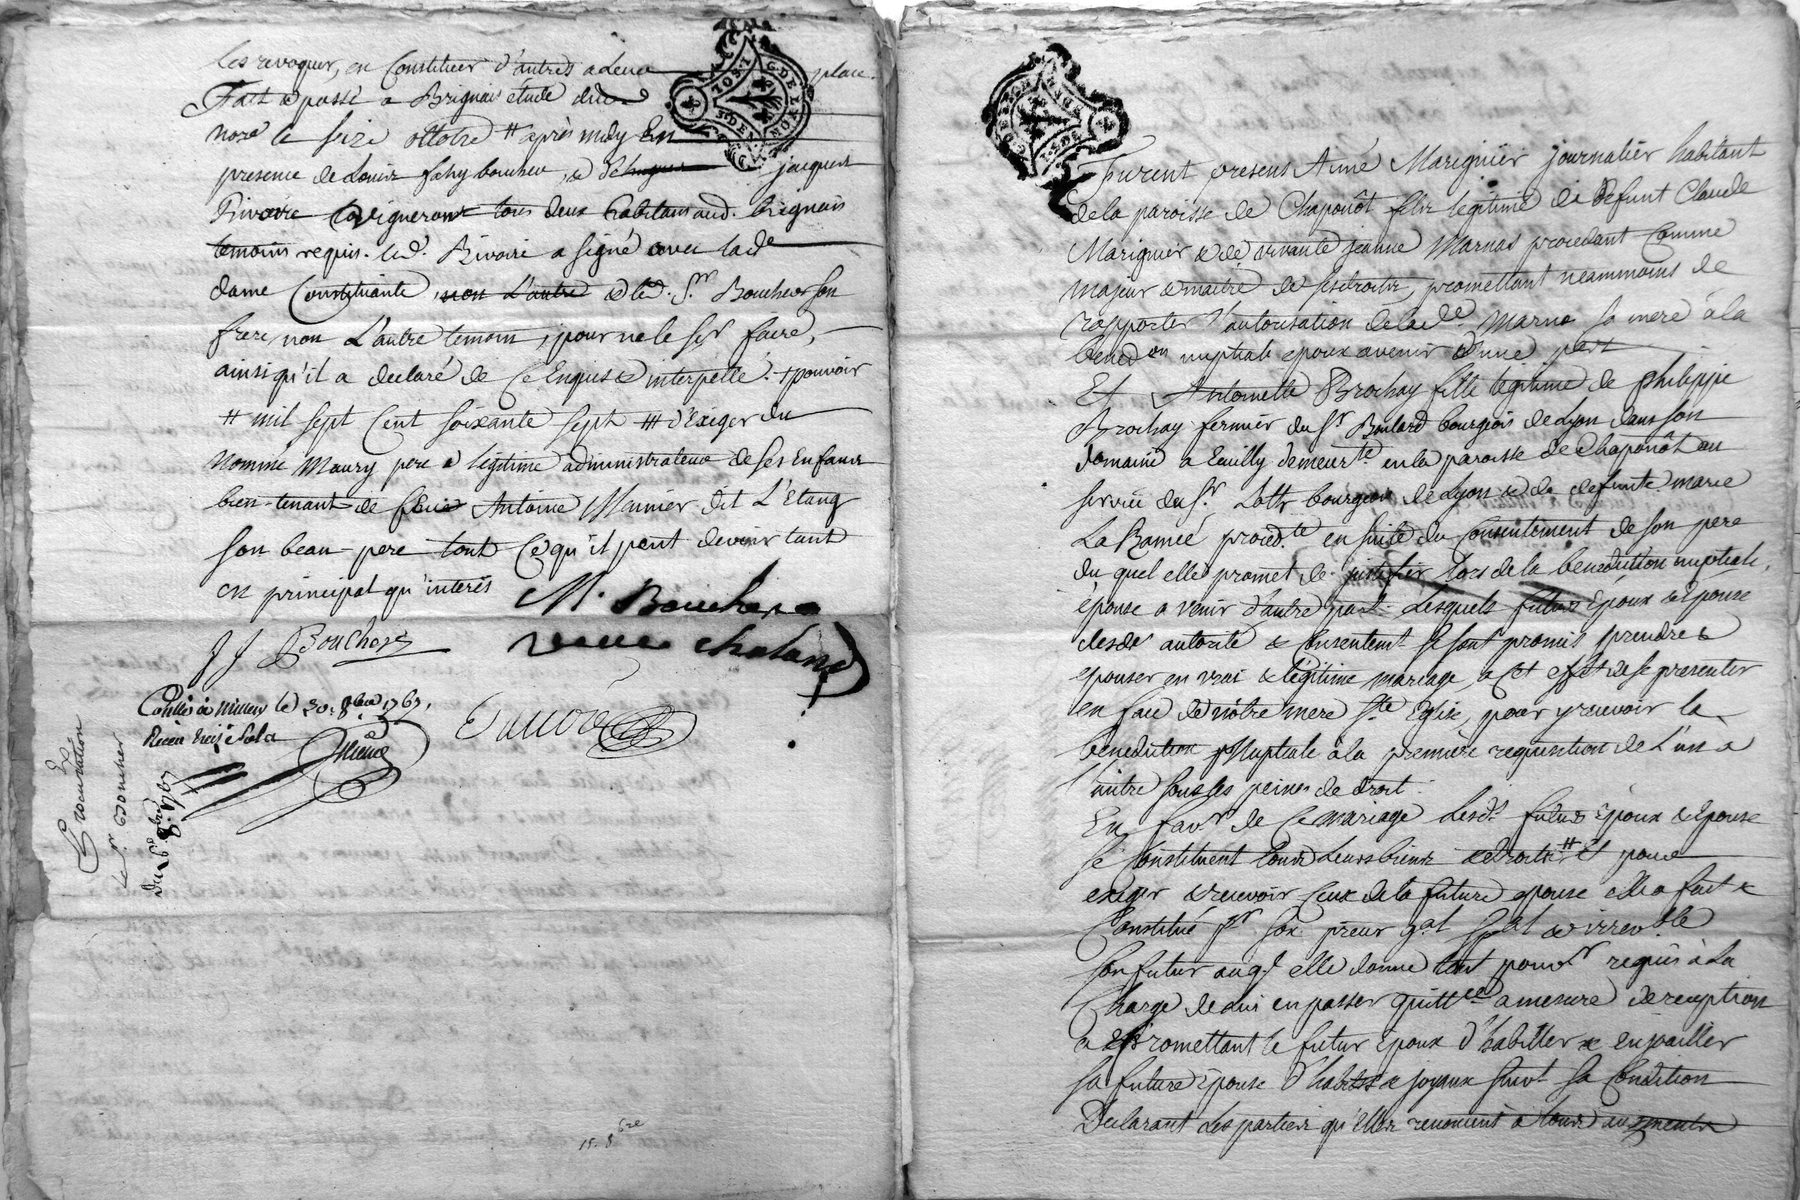 les revoquer, en Constituer d'autres a leur place.
Fait & passé a Brignais étude dud.
nore le seize octobre # après midy En
presence de Louis fahy boucher, & jacques
Rivoire vigneron tous deux habitans aud. brignais
temoins requis. led. Rivoire a signé avec lad.e
dame Constituante, non l'autre & led. S.r Boucher son
frere, non L'autre temoin, pour ne le sçr faire,
ainsi qu'il a declaré de Ce Enquis & interpellé. + pouvoir
# mil sept Cent soixante sept ## d'Exiger du
nommé Maury pere & légitime administrateur de ses Enfans
bien-tenant de Antoine Monnier dit L'Etang
son beau-pere tout Ce qu'il peut devoir tant
en principal qu'interês
M. Boucher
JJ Boucher
veuve chaland
le 30. 8bre 1767.
Procuration
le S.r Boucher
du 16 8bre 1767
15. 8bre
Furent presens Aimé Marignier journalier habitant
de la paroisse de Chaponôt fils legitime de defunt Claude
Marignier & de vivante jeanne Marnas procedant Comme
majeur & maitre de ses droits, promettant neammoins de
rapporter l'autorisation de lad.e Marnas sa mere à la
bened.on nuptiale epoux avenir d'une part
Et Antoinette Brochay fille legitime de philippe
Brochay fermier du S.r Boulard bourgeois de Lyon dans son
domaine a Cuilly demeur.te en la paroisse de Chaponôt au
service du S.r bourgeois de Lyon & de defunte marie
La Ramée proced.te en suite du Consentement de son pere
du quel elle promet de justifier lors de la benediction nuptiale,
épouse a venir d'autre part. Lesquels futurs Epoux & Epouse
desd. autorité & Consentem.t se sont promis prendre &
epouser en vrai & légitime mariage, a Cet effet de se presenter
en face de nôtre mere S.te Eglise, pour y recevoir la
benediction Nuptiale à la première requisition de L'un a
l'autre sous les peines de droit.
En fav.r de Ce mariage Lesd.s futurs Epoux & Epouse
se Constituent tous Leurs biens & droits # Et pour
exiger & recevoir Ceux de la future epouse elle a fait &
Constitué p.r son preur g.al sp.al & irrevo.ble
son futur auq.l elle donne tout pouv.r requis à La
Charge de lui en passer quitt.ce a mesure de reception
& Promettant le futur Epoux d'habiller & enjoailler
sa future Epouse d'habits & joyaux suiv.t sa Condition
Declarant Les parties qu'Elles renoncent à tous augments